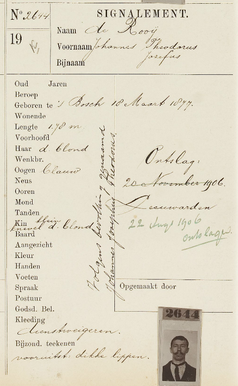 No. 2644
SIGNALEMENT.
19
Naam de Rooy
Voornaam Johannes Theodorus
Josefus
Bijnaam
Oud Jaren
Beroep
Geboren te 's Bosch 18 Maart 1877.
Wonende
Lengte 1.78 m
Voorhoofd
Haar d. blond
Wenkbr.
Oogen blauw
Neus
Ooren
Mond
Tanden
Kin
Baard d. blond
Aangezicht
Kleur
Handen
Voeten
Spraak
Postuur
Godsd. Bel.
Kleeding
dienstweigeren.
Bijzond. teekenen
vooruitst. dikke lippen.
Volgens genaamd
Johannes Josephus Theodorus
Ontslag:
20 November 1906.
Leeuwarden
22 1906
ontslagen
Opgemaakt door
2644